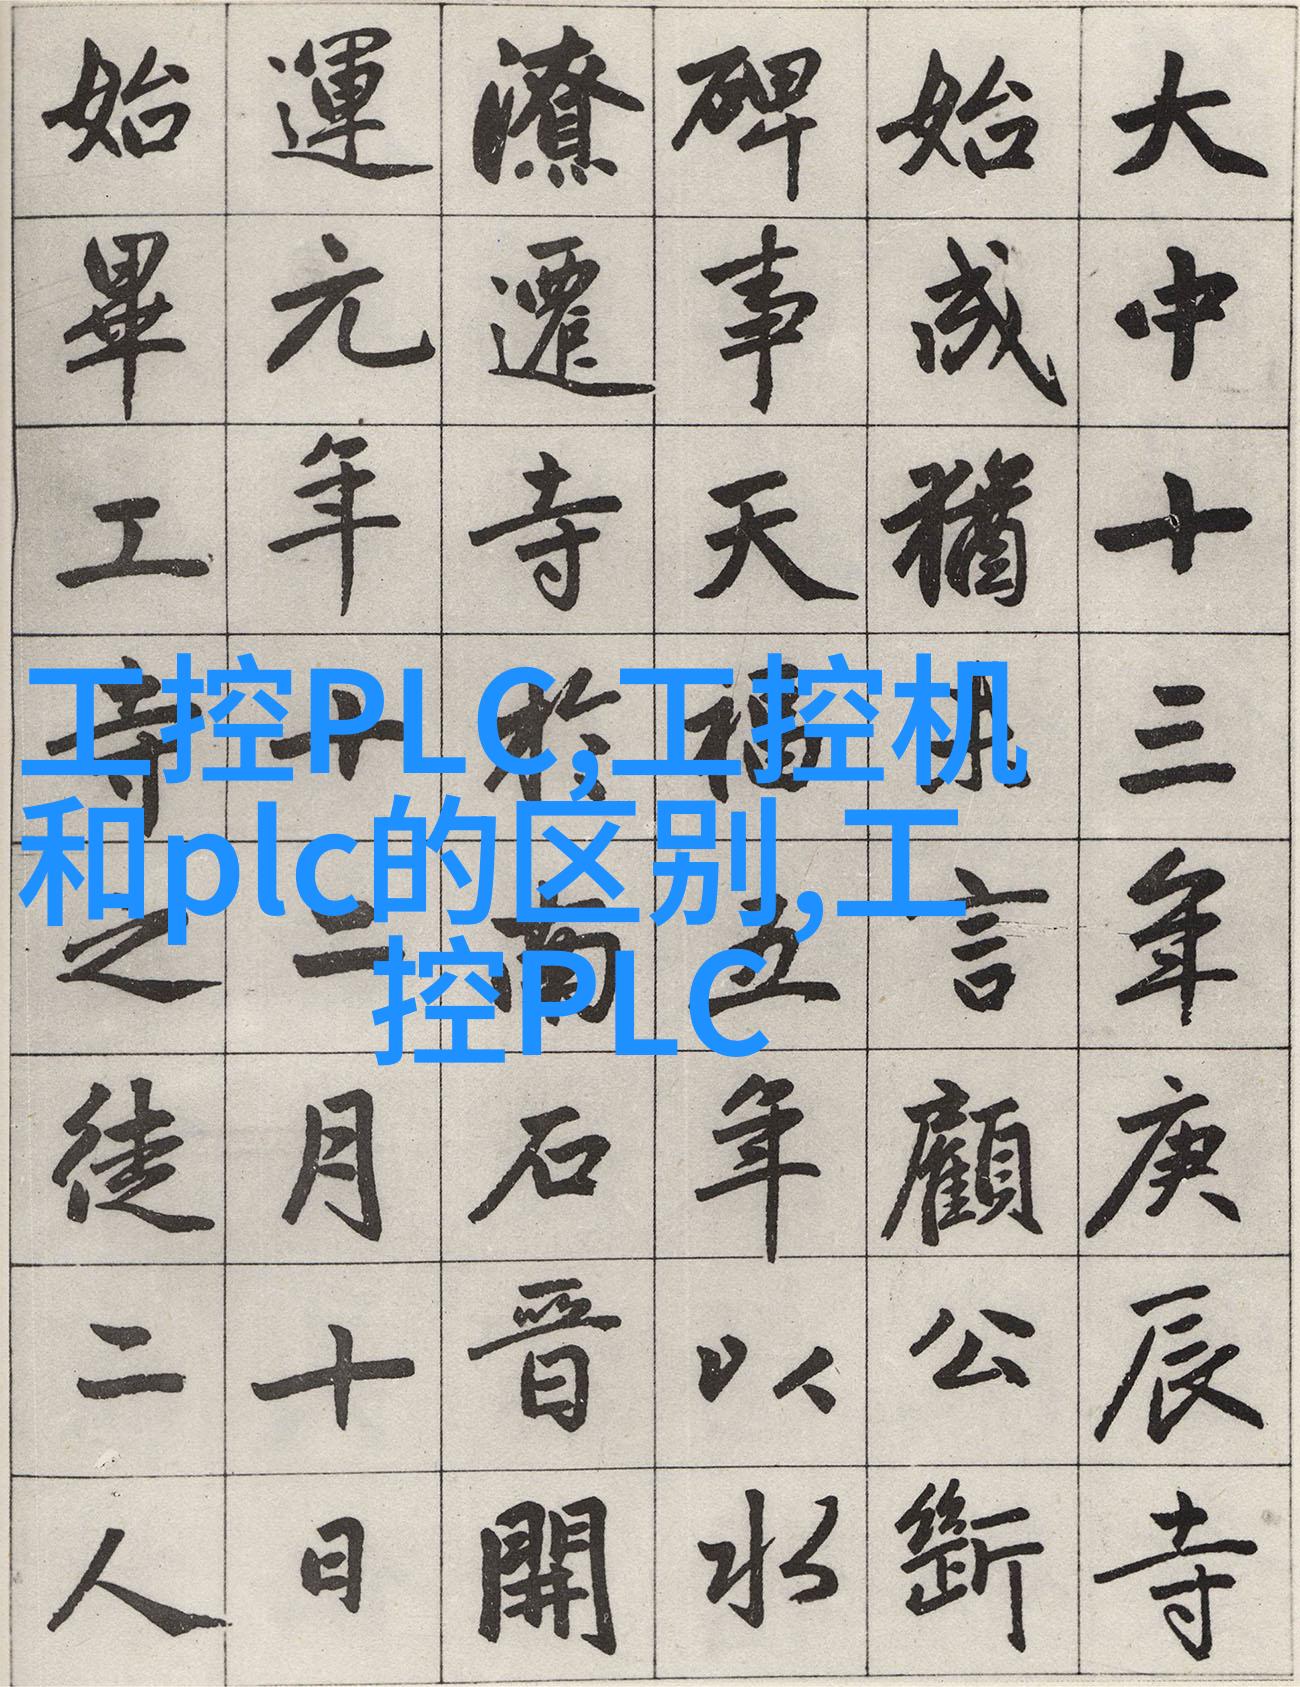 大中十三年庚辰寺
始成猶言顧公斷
碑事天福五年以水
潦遷寺於南石晉開
運元年十二月十日
始畢工寺之徒二人
工控PLC,工控机
和plc的区别,工
控PLC